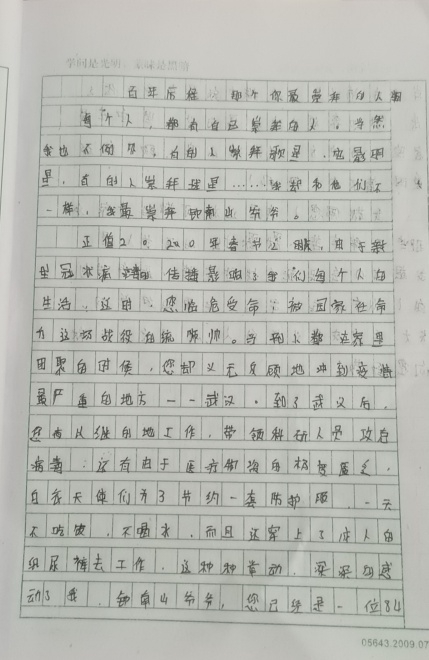 百年后怪 那个你最崇拜的人物
每个人,都有自己崇拜的人。当然
我也不例外。有的人崇拜歌星,也是明
星,有的人崇拜球星……我却和他们不
一样,我最崇拜钟南山爷爷。
正值2020年春节之际,由于新
型冠状病毒的传播影响了我们每个人的
生活,这时,您临危受命,被国家任命
为这场战役的统帅。当别人都在家里
团聚的时候,您却义无反顾地冲到疫情
最严重的地方——武汉。到了武汉后,
您夜以继日的地工作,带领科研人员攻克
病毒,还有由于医疗物资的极度匮乏,
白衣天使们为了节约一套防护服,一天
不吃饭,不喝水,而且还穿上了成人的
纸尿裤去工作,这种种举动,深深的感
动了我,钟南山爷爷,您已经是一位84
05643.2009.07